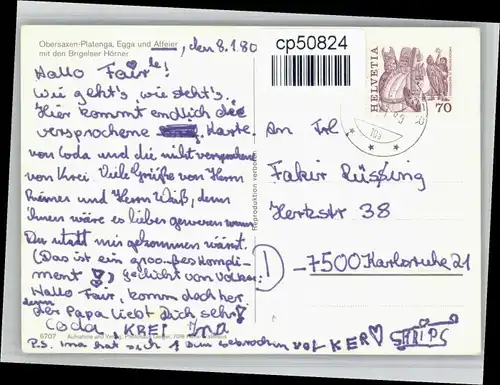 Obersaxen-Platenga, Egga und Affeier
mit den Brigelser Hörner
, den 8.1.80
cp50824
HELVETIA
70
Hallo Fair'le!
Wie geht's, wie steht's.
Hier kommt endlich die
versprochene Karte
von Coda und die nicht versprochene
von Krei. Viele Grüße von Herrn
Reimer und Herrn Weiß, denn
ihnen wäre es lieber gewesen wenn
Du statt mir gekommen wärst.
(Das ist ein grooßes Kompli-
ment !) geliebt von Volker.
Hallo Fair, komm doch her,
denn
der Papa liebt Dich sehr!
Coda, KREI Ina
P.S. Ina hat sich 1 gebrochen VOLKER SHIPS
An Frl
Fakir Rüssing
Herkstr 38
-7500 Karlsruhe 21
Reproduktion verboten
6707 Aufnahme und Verlag